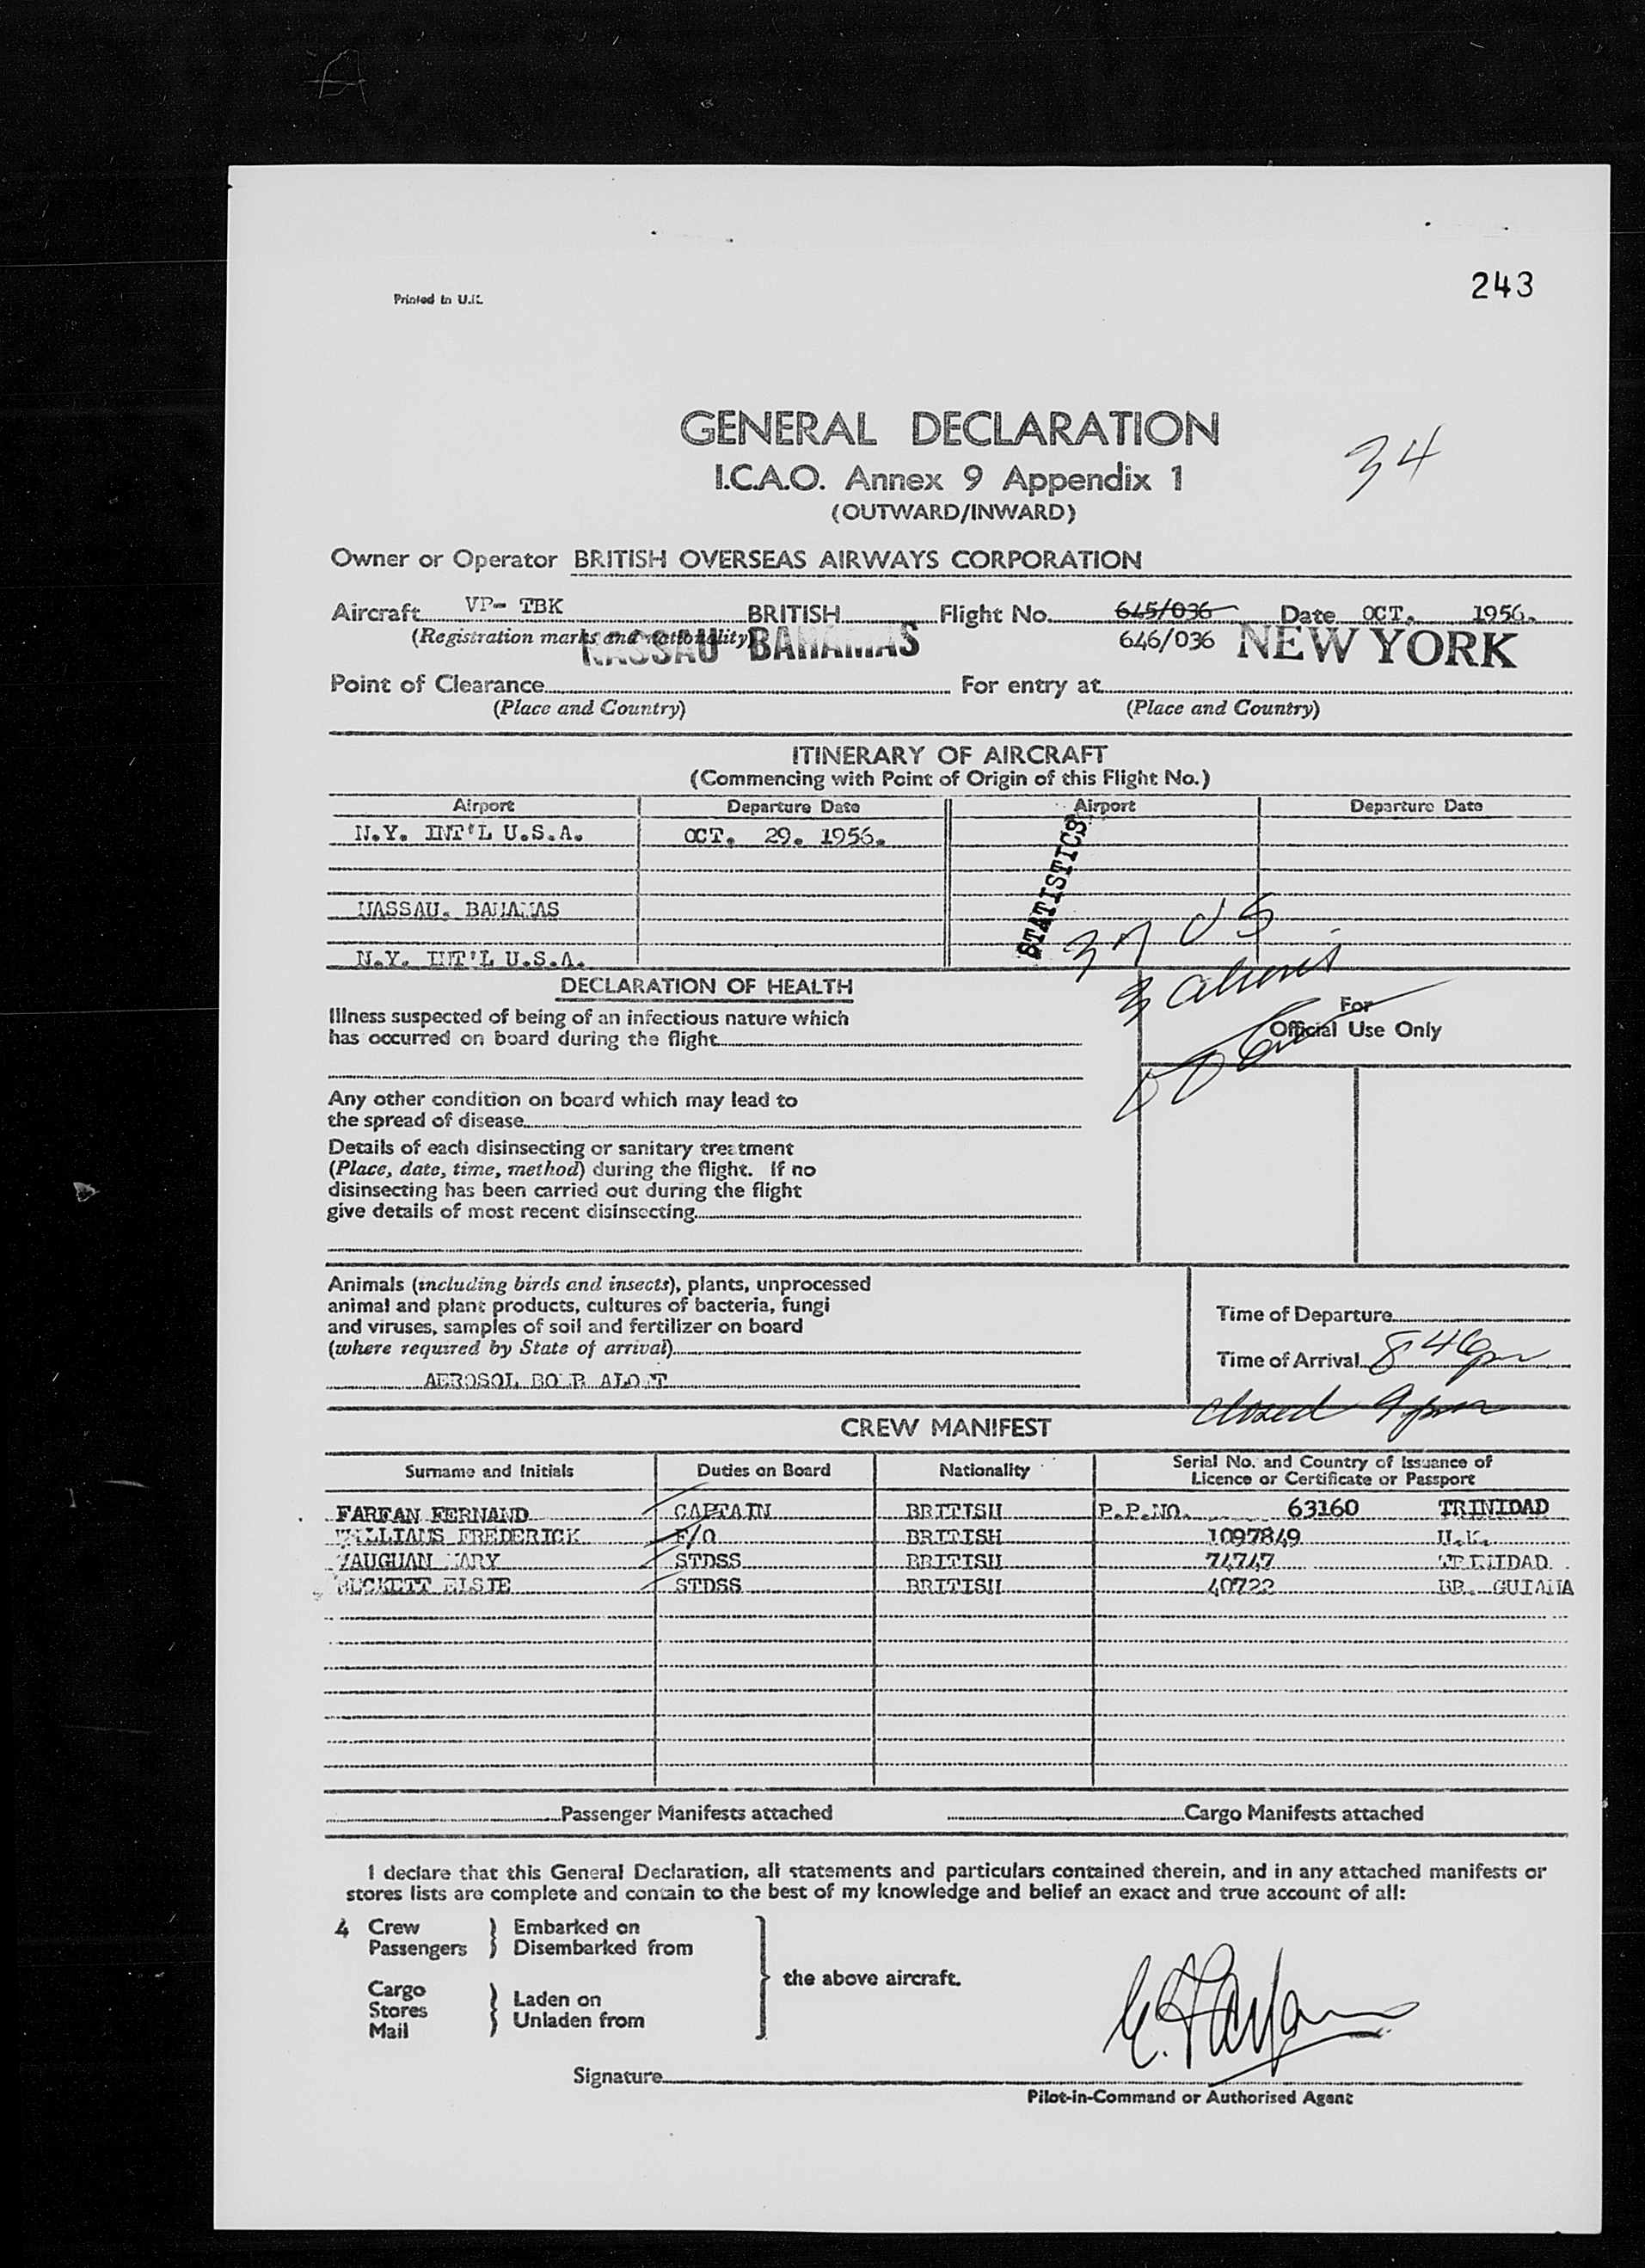 Printed in U.K.
243
GENERAL DECLARATION
34
I.C.A.O. Annex 9 Appendix 1
(OUTWARD/INWARD)
Owner or Operator BRITISH OVERSEAS AIRWAYS CORPORATION
Aircraft VP- TBK BRITISH Flight No. 645/036 Date OCT. 1956.
(Registration marks and nationality) NASSAU BAHAMAS 646/036 NEW YORK
Point of Clearance For entry at
(Place and Country) (Place and Country)
ITINERARY OF AIRCRAFT
(Commencing with Point of Origin of this Flight No.)
Airport Departure Date Airport Departure Date
N.Y. INT'L U.S.A. OCT. 29. 1956.
STATISTICS
NASSAU. BAHAMAS
N.Y. INT'L U.S.A.
31 US
3 aliens
DECLARATION OF HEALTH
For
Official Use Only
Illness suspected of being of an infectious nature which
has occurred on board during the flight
Any other condition on board which may lead to
the spread of disease
Details of each disinsecting or sanitary treatment
(Place, date, time, method) during the flight. If no
disinsecting has been carried out during the flight
give details of most recent disinsecting
Animals (including birds and insects), plants, unprocessed
animal and plant products, cultures of bacteria, fungi
and viruses, samples of soil and fertilizer on board
(where required by State of arrival)
Time of Departure
Time of Arrival 8:46pm
AEROSOL BOMB ALOFT
closed 9pm
CREW MANIFEST
Surname and Initials Duties on Board Nationality Serial No. and Country of Issuance of
Licence or Certificate or Passport
FARFAN FERNAND CAPTAIN BRITISH P.P.NO. 63160 TRINIDAD
WILLIAMS FREDERICK F/O BRITISH 1097849 U.K.
VAUGHAN MARY STDSS BRITISH 74747 TRINIDAD
BECKETT ELSIE STDSS BRITISH 40722 BR. GUIANA
Passenger Manifests attached Cargo Manifests attached
I declare that this General Declaration, all statements and particulars contained therein, and in any attached manifests or
stores lists are complete and contain to the best of my knowledge and belief an exact and true account of all:
4 Crew Embarked on
Passengers Disembarked from
the above aircraft.
Cargo
Stores Laden on
Mail Unladen from
Signature
Pilot-in-Command or Authorised Agent